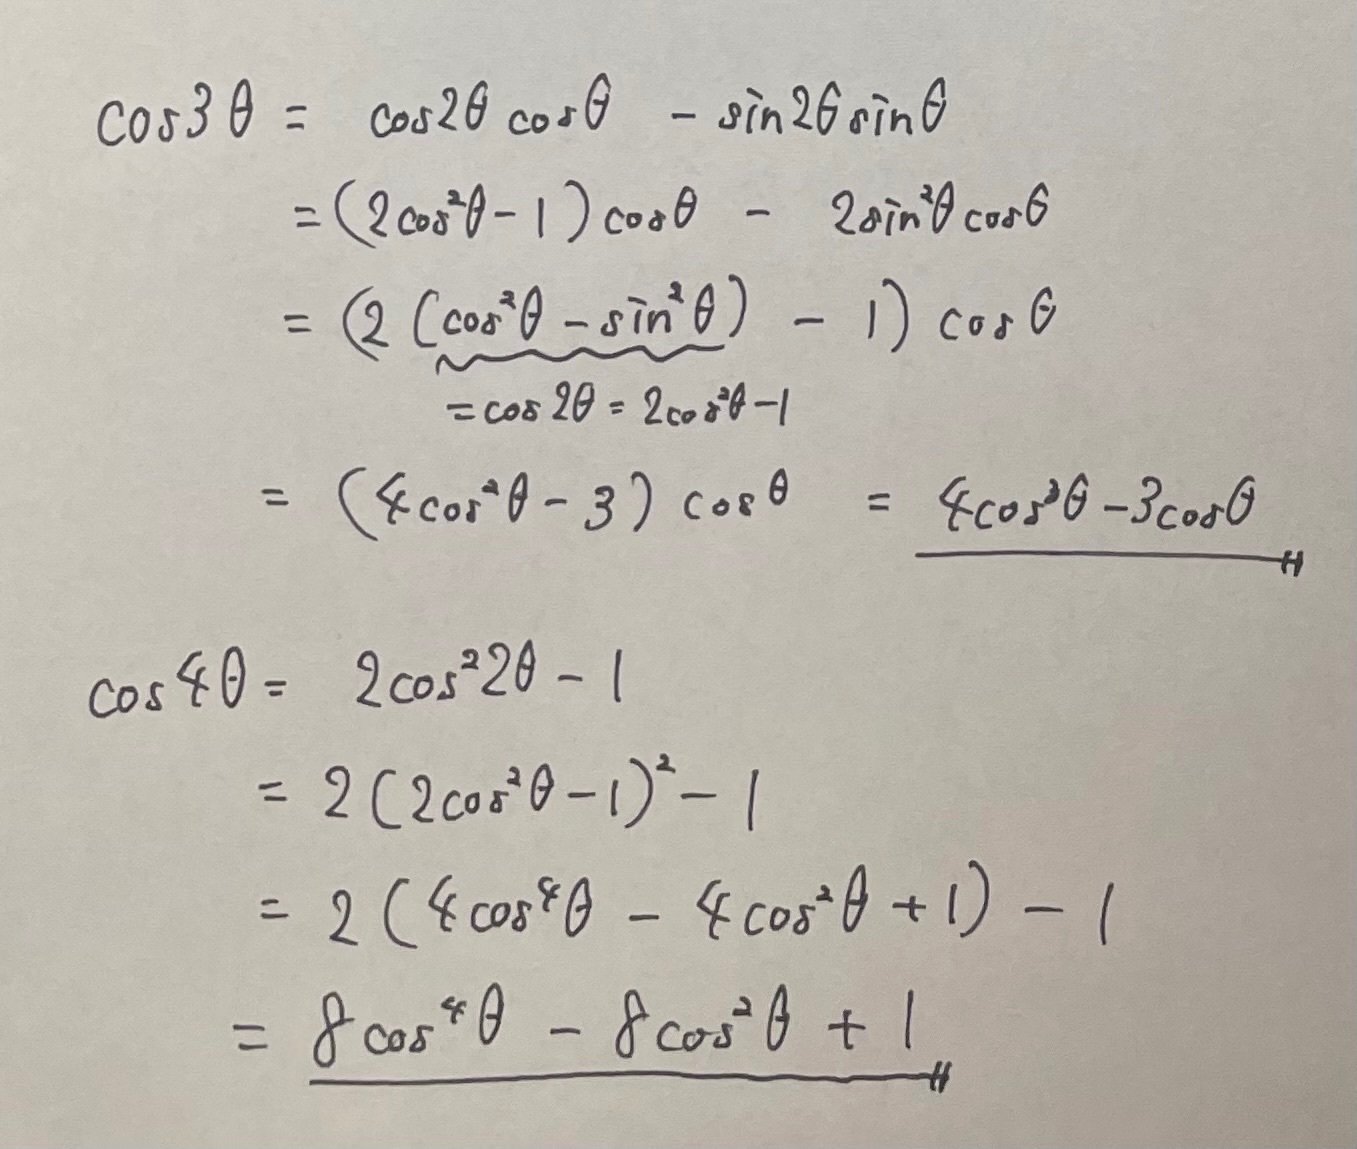 cos3θ = cos2θ cosθ - sin2θ sinθ
= (2cos²θ-1) cosθ - 2sin²θ cosθ
= (2(cos²θ - sin²θ) - 1) cosθ
= cos2θ = 2cos²θ-1
= (4cos²θ-3) cosθ = 4cos³θ-3cosθ
cos4θ = 2cos²2θ - 1
= 2(2cos²θ-1)² - 1
= 2(4cos⁴θ - 4cos²θ + 1) - 1
= 8cos⁴θ - 8cos²θ + 1